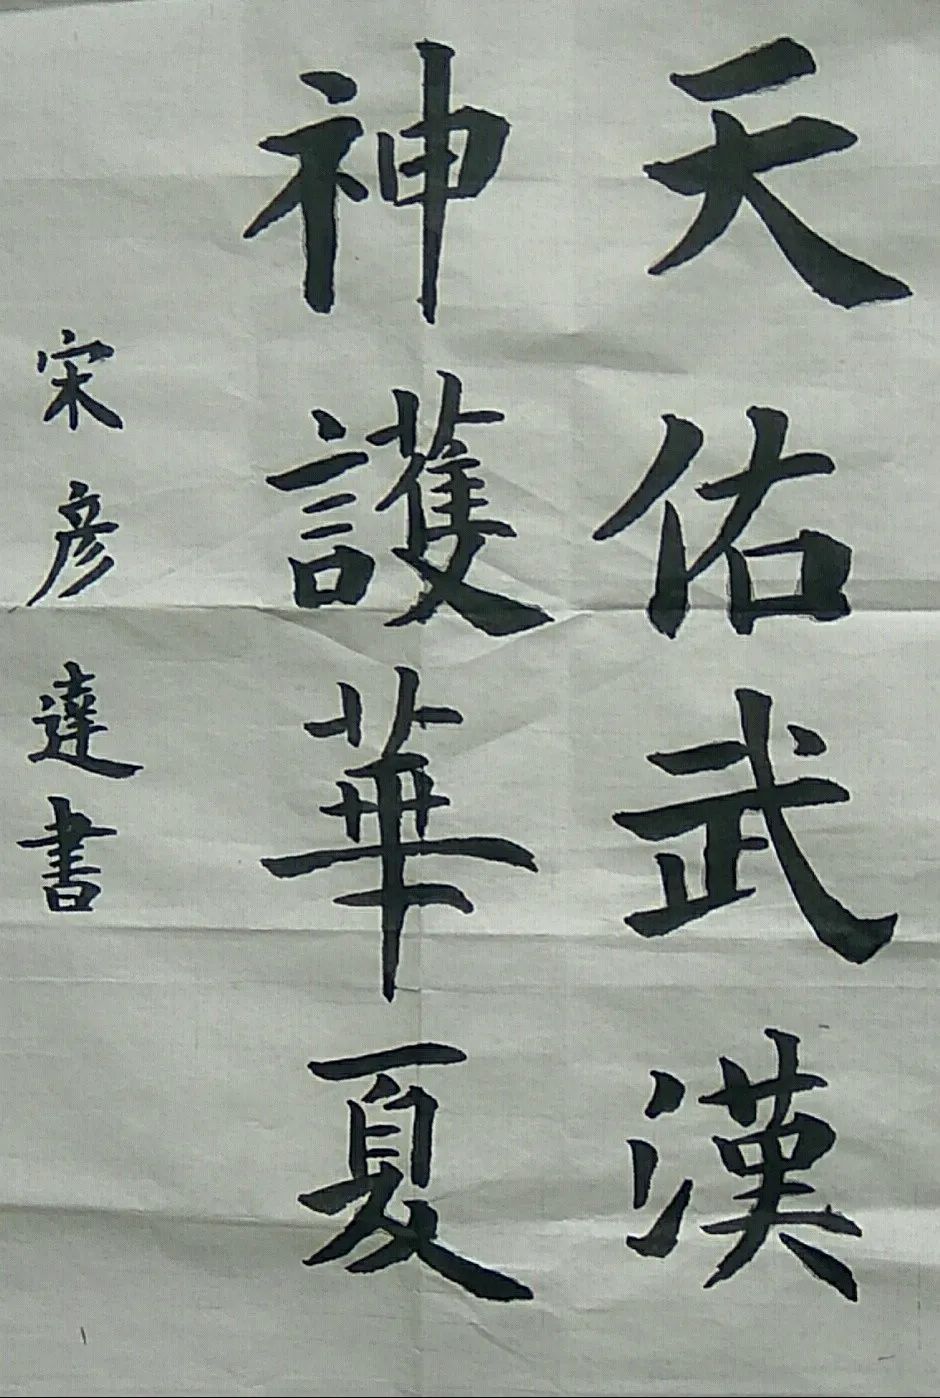 天佑武漢
神護華夏
宋彦達書